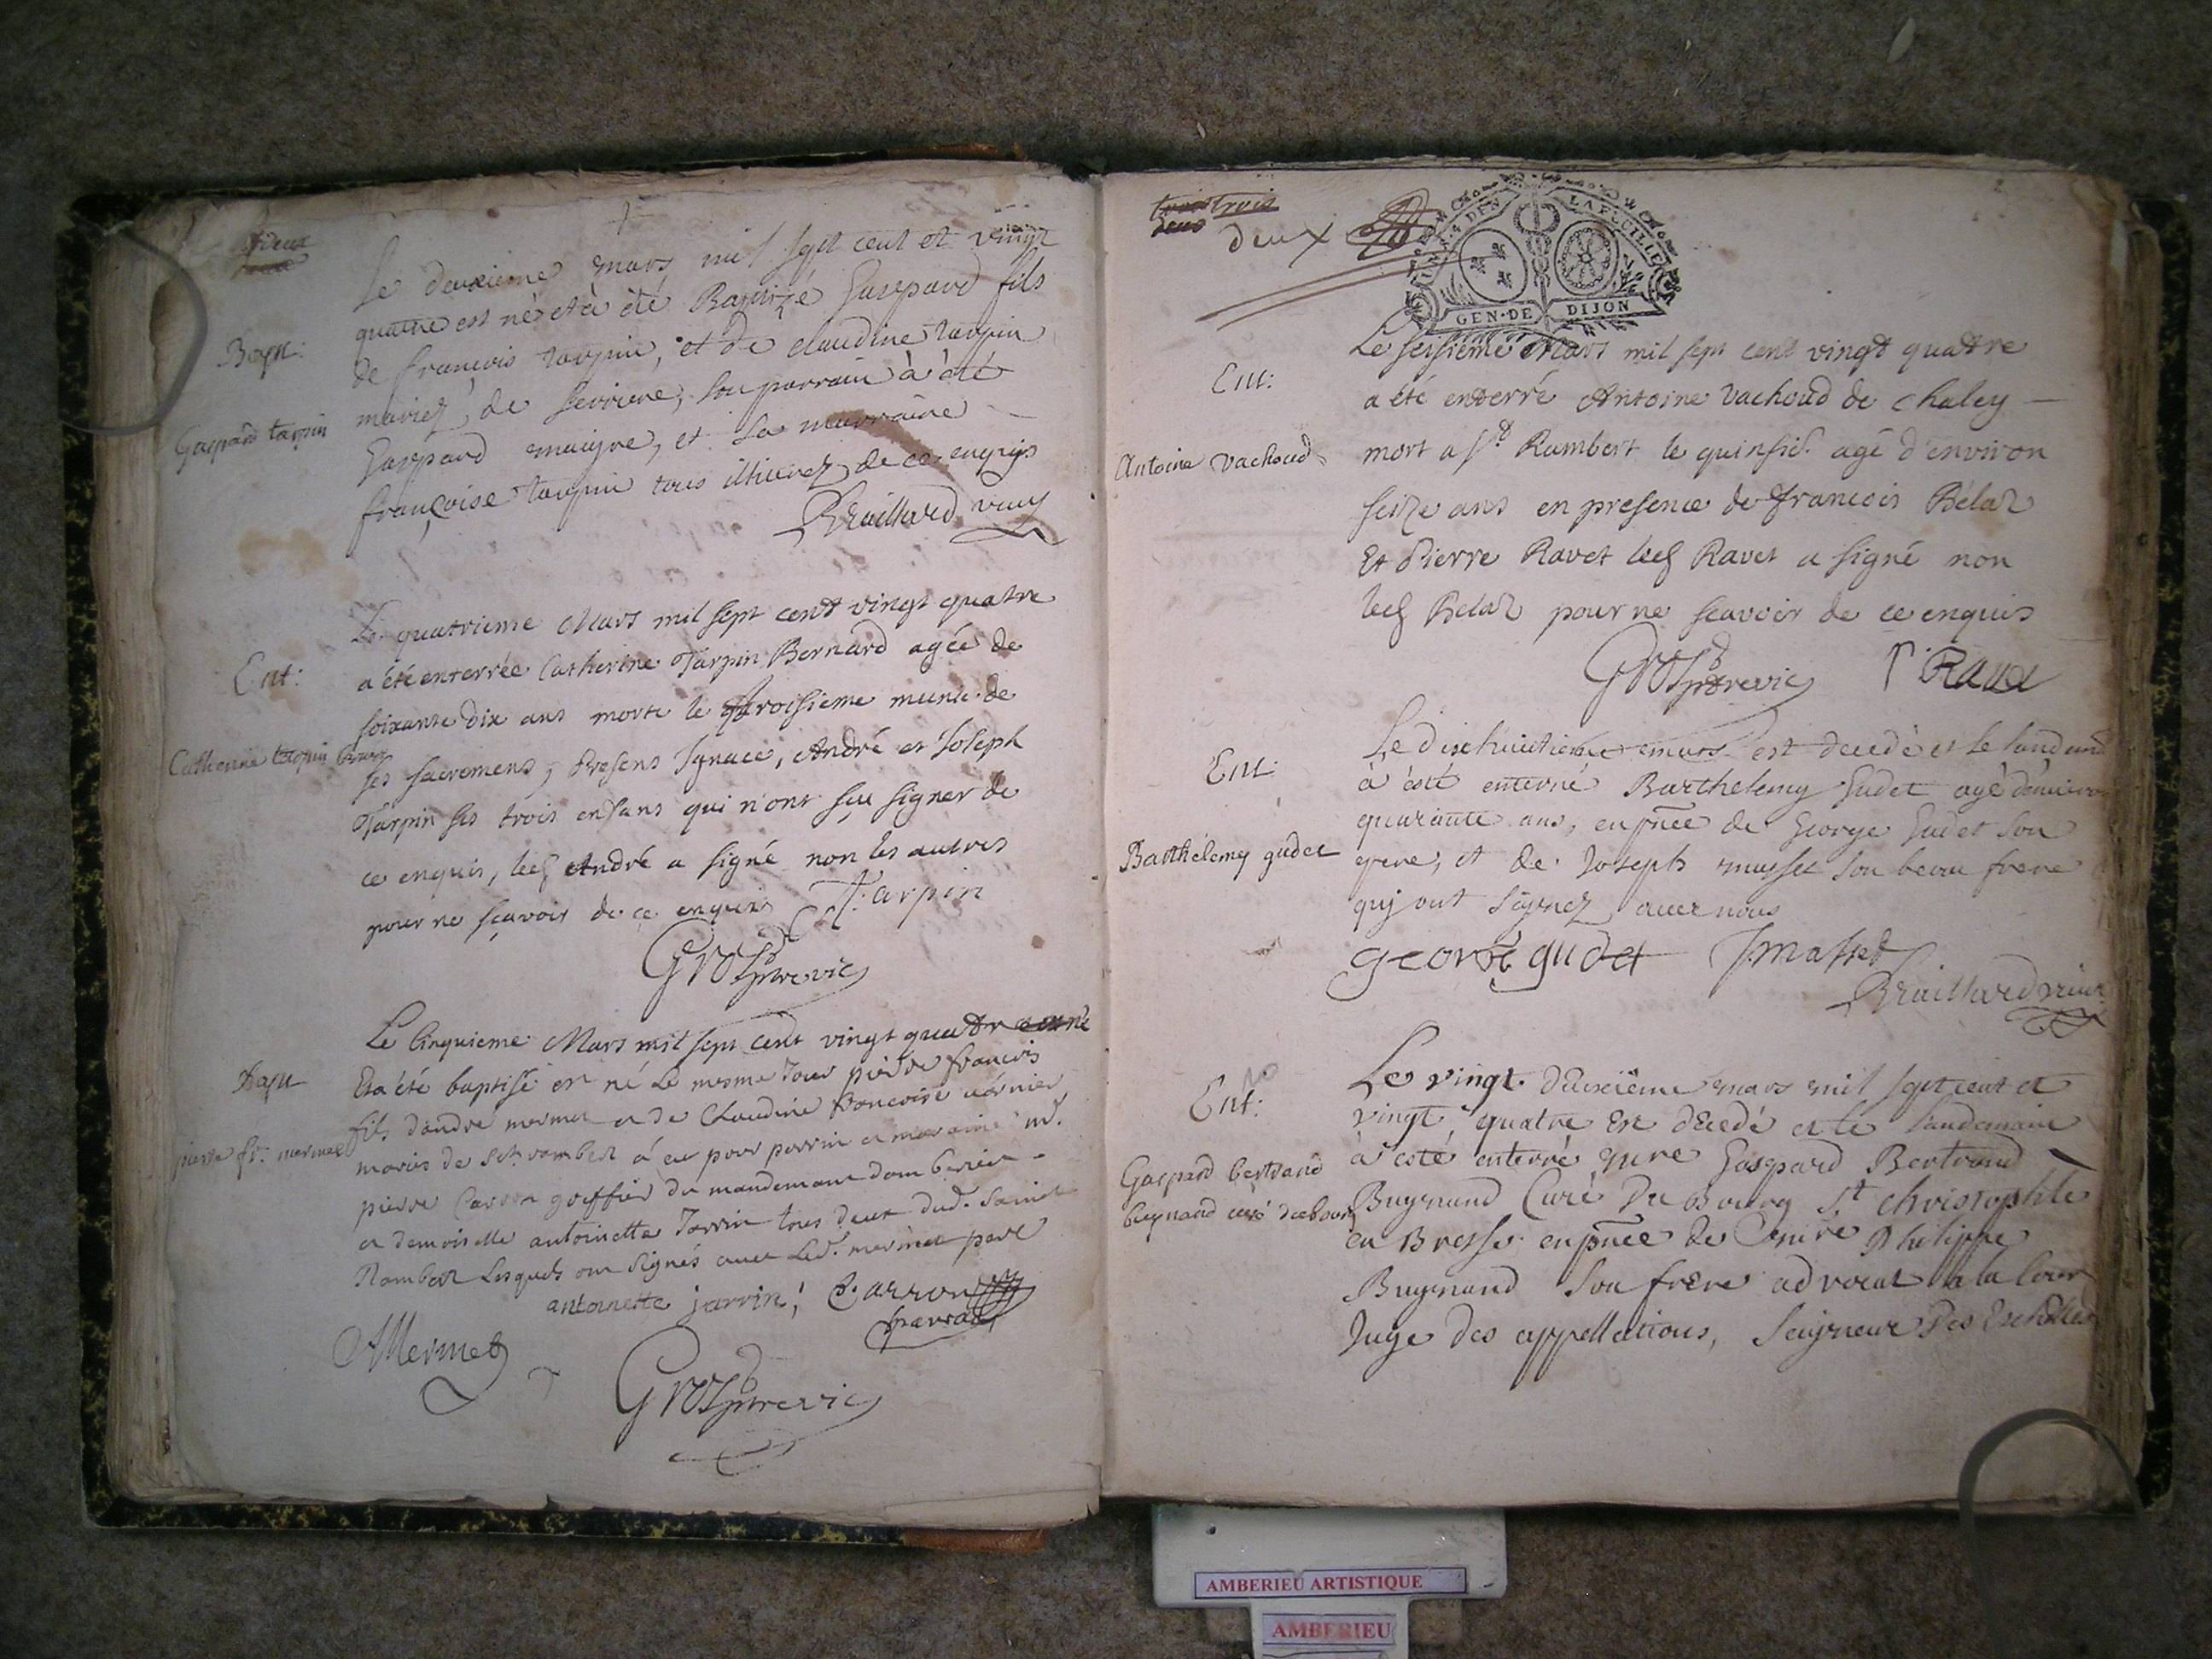 deux
Le deuxieme mars mil sept cent et vingt
quattre est né et à été Baptizé Gaspard fils
Bapt:
de francois tarpin, et de claudine tarpin
mariez, de serriere, son parrain à èté
Gaspard tarpin
Gaspard emaigre, et sa marraine
françoise tarpin tous illiterez de ce enquis
Braillard vicaire
Le quatrieme Mars mil sept cent vingt quatre
Ent:
a été enterrée Catherine Tarpin Bernard agée de
soixante dix ans morte le troisieme munie de
Catherine tarpin
ses sacremens, Presens Ignace, André et Joseph
Tarpin ses trois enfans qui n'ont sçu signer de
ce enquis, led André a signé non les autres
pour ne sçavoir de ce enquis
A Tarpin
Grosp
Le Cinquieme Mars mil sept cent vingt quatre
Bapt
Et a été baptisé est né le mesme Jour pierre francois
fils dandre mermet et de Claudine francoise vernier
pierre fr: mermet
mariés de St rambert a eu pour parrin et maraine mr.
pierre Carron greffier du mandement dambérieu
et demoiselle antoinette Jarrin tous deux dud. saint
Rambert lesquels ont signés avec led. mermet pere
antoinette jarrin, C. arron
parrain
AMermet
Grosp
trois
deux
deux
GEN·DE DIJON
LA FEUILLE
Le seisieme Mars mil sept cent vingt quatre
Ent:
a été enterré Antoine Vachoud de chaley
Antoine vachoud
mort a St Rambert le quinsié. agé d'environ
seize ans en presence de francois Bélaz
Et Pierre Ravet led Ravet a signé non
led Belaz pour ne scavoir de ce enquis
Grosp P. Ravet
Le dixhuictieme mars est decedé et le landemain
Ent:
à été enterré Barthelemy Gudet agé denviron
quarante ans, en pnce de George Gudet son
Barthélemy gudet
frere, et de Joseph musset son beau frere
qui ont signez avec nous
george gudet J masset
Braillard vicaire
Le vingt deuxiéme mars mil sept cent et
Ent:
vingt, quatre Est decedé et le landemain
à esté enterré Gaspard Bertrand
Gaspard bertrand
Bugnand Curé Du Bourg St christophle
bugnand curé du bourg
en Bresse en pnce de Philippe
Bugnand son frere advocat a la Cour
Juge des appellations, Seigneur Des Eschelles
AMBERIEU ARTISTIQUE
AMBERIEU